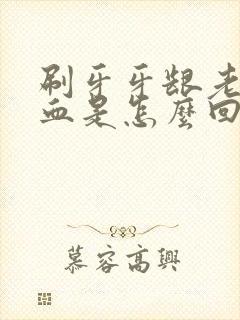 刷牙牙龈老
血是怎麼回
慕容高興